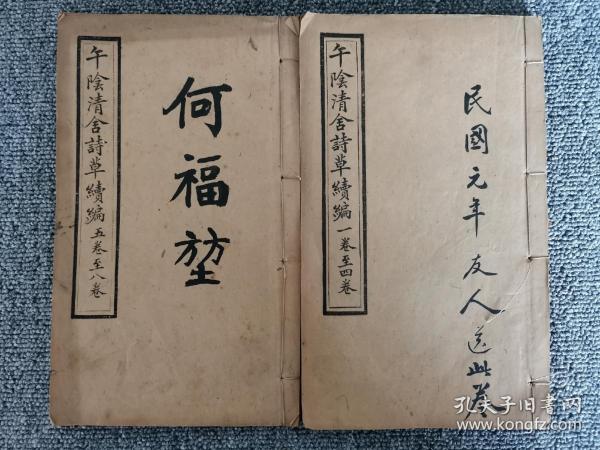 民國元年 友人送此卷
午陰清舍詩草續編 一卷至四卷
何福堃
午陰清舍詩草續編 五卷至八卷
孔夫子旧书网
www.kongfz.com